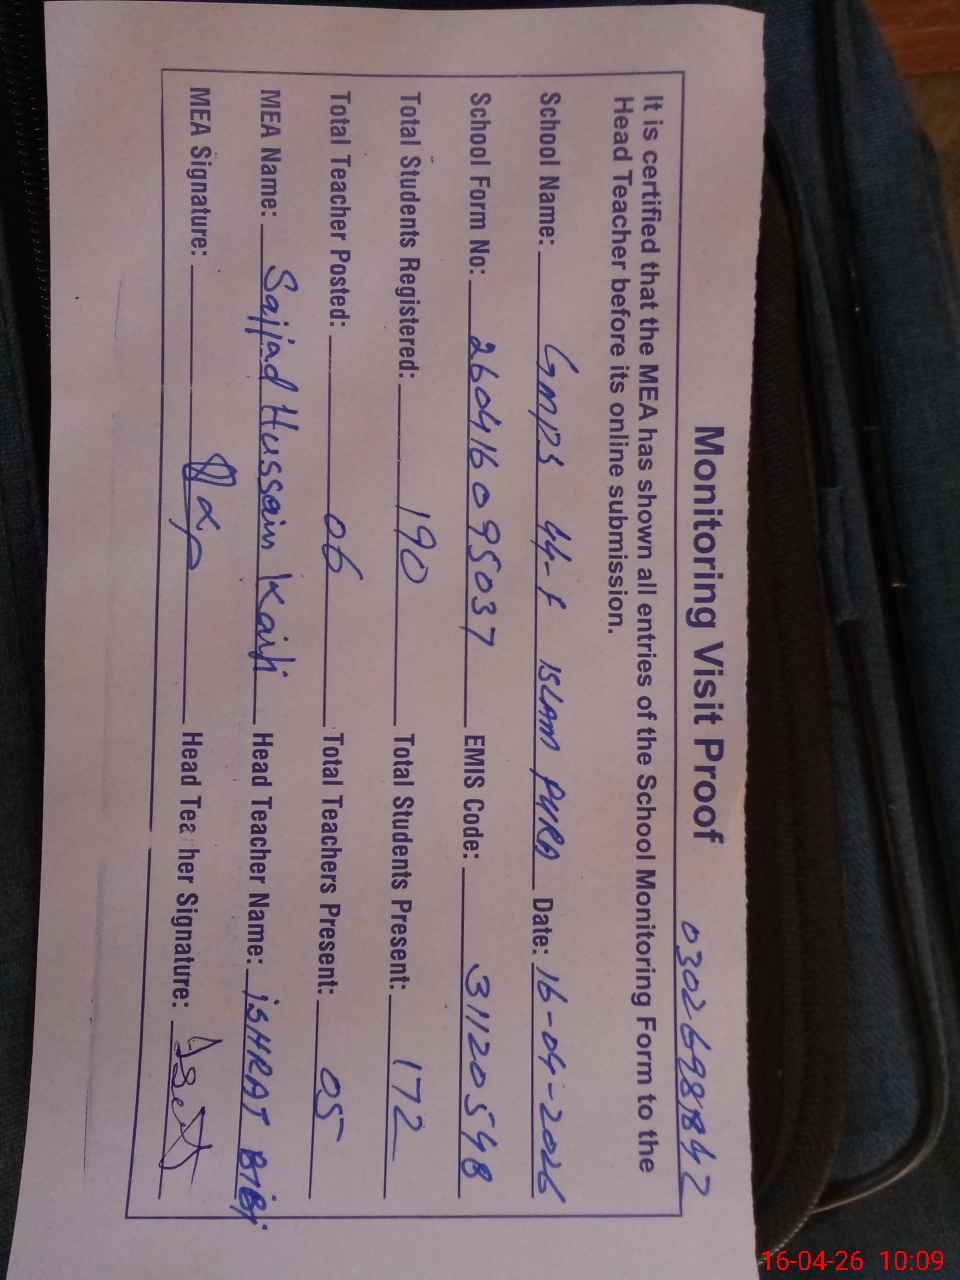 Monitoring Visit Proof 03026988847
It is certified that the MEA has shown all entries of the School Monitoring Form to the
Head Teacher before its online submission.
School Name: GMPS 44-F ISLAM PURA Date: 16-04-2026
School Form No: 260416095037 EMIS Code: 31120548
Total Students Registered: 190 Total Students Present: 172
Total Teacher Posted: 06 Total Teachers Present: 05
MEA Name: Sajjad Hussain Head Teacher Name: ISHRAT BIBI
MEA Signature: Head Teacher Signature:
16-04-26 10:09